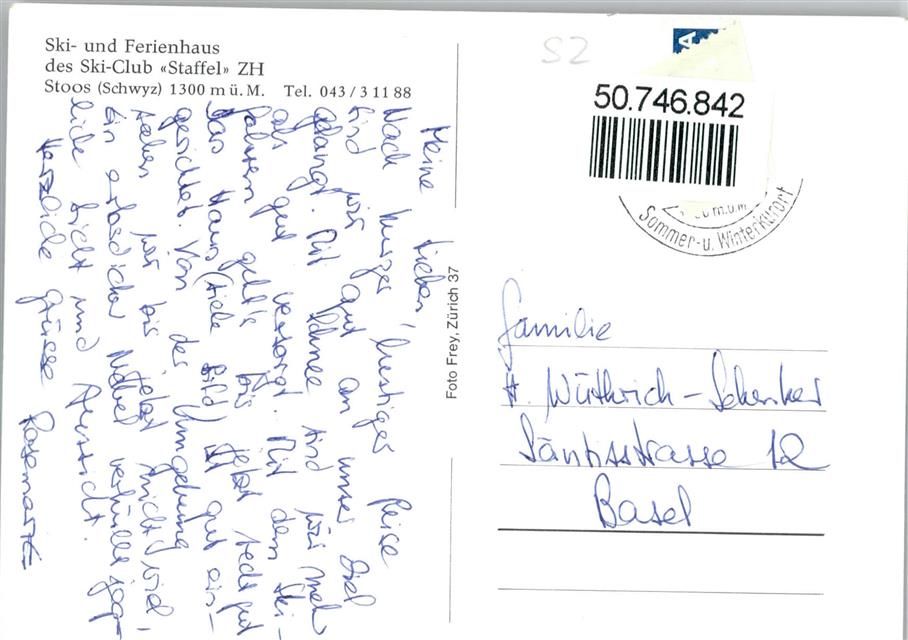 Ski- und Ferienhaus
des Ski-Club «Staffel» ZH
Stoos (Schwyz) 1300 m ü. M. Tel. 043 / 3 11 88
Meine Lieben!
Nach kurzer, lustiger Reise
sind wir gut an unser Ziel
gelangt. Mit Schnee sind wir mehr
als gut versorgt. Mit dem Ski-
fahren geht's bis jetzt recht gut
Das Haus (siehe Bild) ist gut ein-
gerichtet. Von der Umgebung
sehen wir bis jetzt nicht viel,
ein erbaulicher Nebel verhüllt jeg-
liche Sicht und Aussicht.
Herzliche Grüsse Rosemarie
Foto Frey, Zürich 37
SZ
A
50.746.842
m.ü.M
Sommer-u. Winterkurort
Familie
H. Wüthrich-Schenker
Säntisstrasse 12
Basel